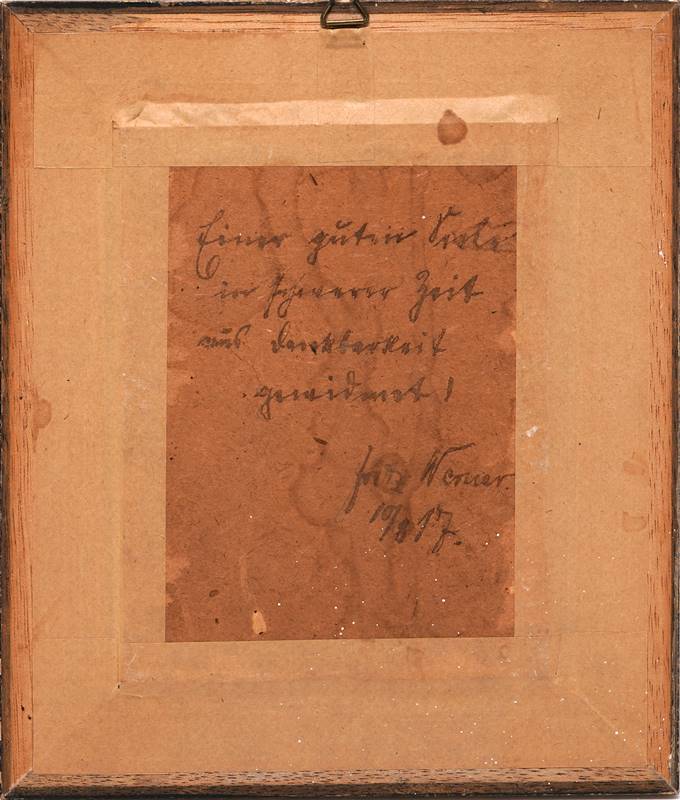 Einer guten Seele
in schwerer Zeit
aus Dankbarkeit
gewidmet!
Fritz Werner
10/8 17.